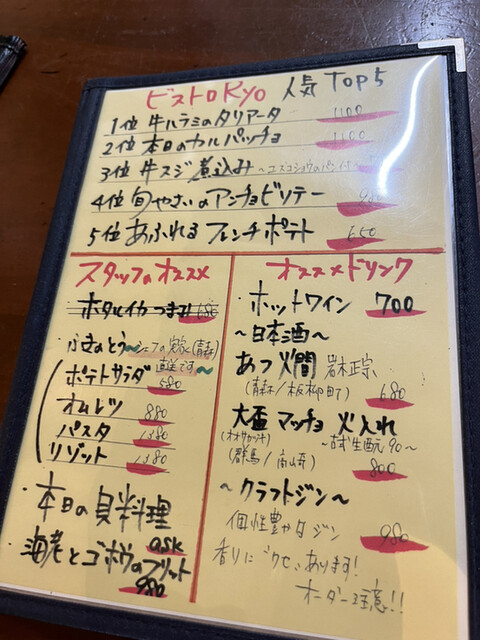 ビストロKyo 人気 TOP5
1位 牛ハラミのタリアータ 1100
2位 本日のカルパッチョ 1100
3位 牛スジ煮込み
4位 旬やさいのアンチョビソテー
5位 あふれる フレンチポテト 650
スタッフのオススメ
ホタルイカつまみ 680
ふきのとう 〜シェフの実家(青森)
直送です〜
ポテトサラダ 580
オムレツ 880
パスタ 1380
リゾット 1380
・本日の魚料理
ask
海老とゴボウのフリット
980
オススメドリンク
・ホットワイン 700
〜日本酒〜
あつ燗 岩木正宗
(青森/板柳町) 680
大盃 マッチョ 火入れ
(群馬/高崎) 800
〜クラフトジン〜
個性豊かなジン 980
香りにクセ、あります!
オーダー注意!!